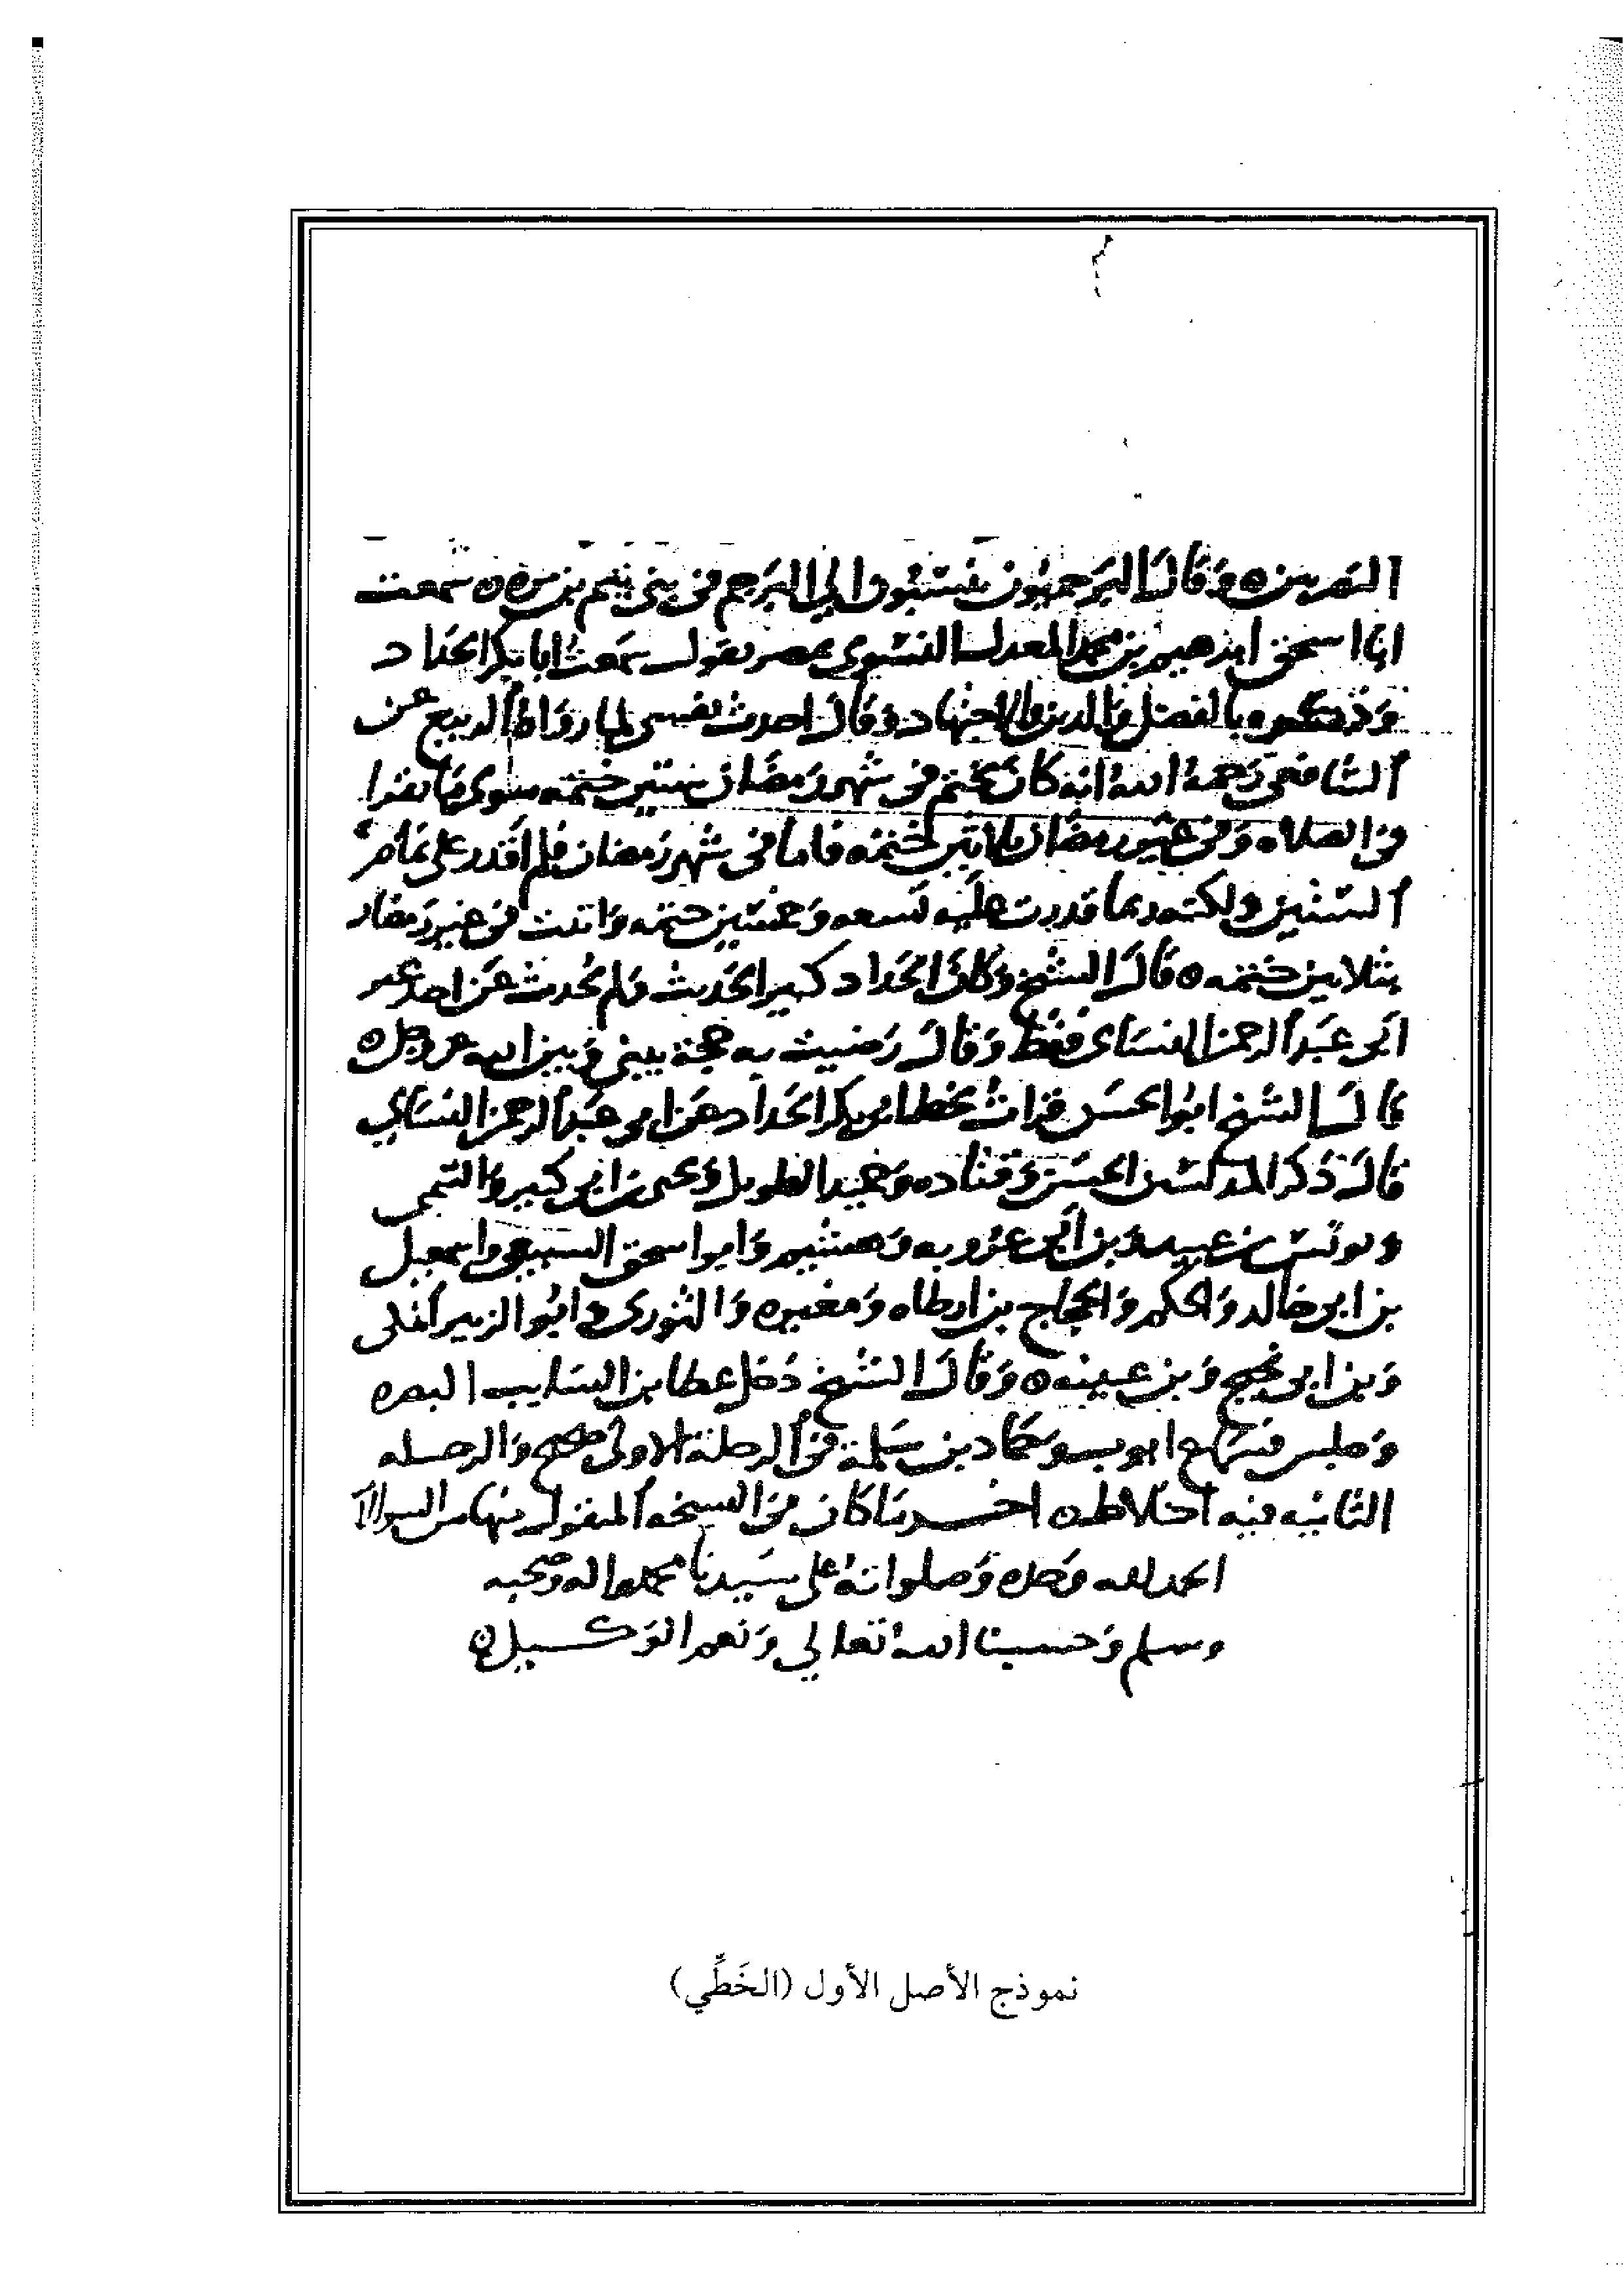 البصريين ه وقال البرجميون ينسبون الي البرجم في بني تميم بن مره ه سمعت
ابا اسحق ابرهيم بن محمد المعدل النسوي بمصر يقول سمعت ابا بكر الحداد
وذكره بالفضل والدين والاجتهاد وقال اخدت نفسي لما رواه الربيع عن
الشافعي رحمة الله انه كان يختم في شهر رمضان ستين ختمه سوى ما يقرا
في الصلاه وفي غير رمضان ثلاثين ختمه فاما في شهر رمضان فلم اقدر على تمام
الستين ولكنه ربما قدرت عليه تسعه وخمسين ختمه واتت في غير رمضان
بثلاثين ختمه ه قال الشيخ وكان الحداد كثير الحديث ولم يحدث عن احد غير
ابي عبد الرحمن النساي فقط وقال رضيت به حجة بيني وبين الله عز وجل ه
قال الشيخ ابو الحسن قرات بخط ابي بكر الحداد عن ابي عبد الرحمن النساي
قال ذكر المدلسين الحسن وقتاده وحميد الطويل ويحيى بن ابي كثير والتيمي
ويونس بن عبيد وبن ابي عروبه وهشيم وابو اسحق السبيعي واسمعيل
بن ابي خالد والحكم والحجاج بن ارطاه ومغيره والثوري وابو الزبير المكي
وبن ابي نجيح وبن عيينه ه وقال الشيخ دخل عطا بن السايب البصره
وجلس فسماع ايوب وحماد بن سلمة في الرحلة الاولى صحيح والرحله
الثانيه فيه اختلاط ه اخر ما كان في النسخه المنقول منها من السوالات
الحمد لله وحده وصلواته على سيدنا محمد واله وصحبه
وسلم وحسبنا الله تعالي ونعم الوكيل ه
نموذج الأصل الأول (الخَطِّي)